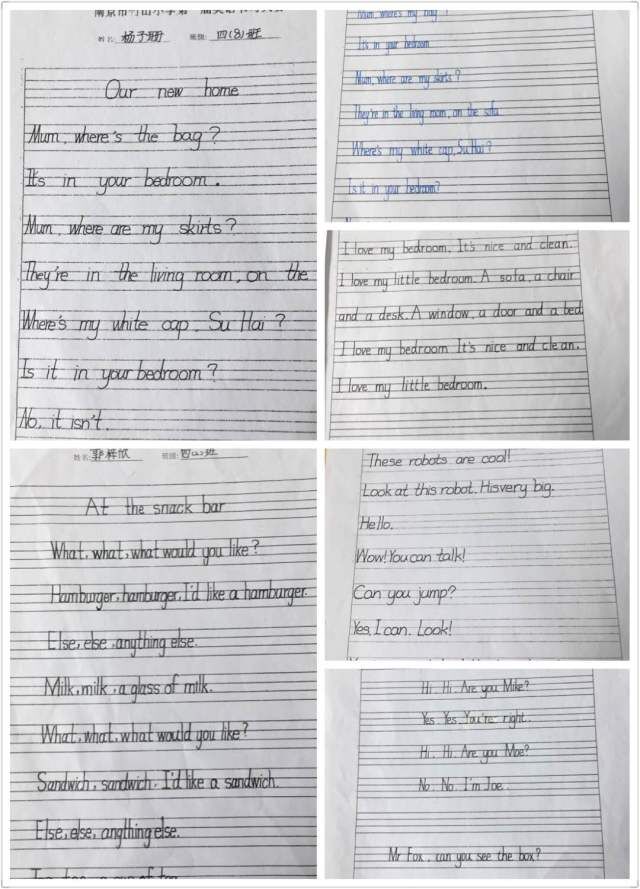 姓名: 杨予珊 班级: 四(8)班
Our new home
Mum, where's the bag?
It's in your bedroom.
Mum, where are my skirts?
They're in the living room, on the
Where's my white cap, Su Hai?
Is it in your bedroom?
No, it isn't.
Mum, where's my bag?
It's in your bedroom
Mum, where are my skirts?
They're in the living room, on the sofa.
Where's my white cap, Su Hai?
Is it in your bedroom?
I love my bedroom. It's nice and clean.
I love my little bedroom. A sofa, a chair
and a desk. A window, a door and a bed.
I love my bedroom It's nice and clean.
I love my little bedroom.
姓名: 班级:
At the snack bar
What, what, what would you like?
Hamburger, hamburger, I'd like a hamburger.
Else, else, anything else.
Milk, milk, a glass of milk.
What, what, what would you like?
Sandwich, sandwich, I'd like a sandwich.
Else, else, angthing else.
These robots are cool!
Look at this robot. Hisvery big.
Hello.
Wow! You can talk!
Can you jump?
Yes, I can. Look!
Hi. Hi. Are you Mike?
Yes. Yes. You're right.
Hi. Hi. Are you Moe?
No. No. I'm Joe.
Mr Fox, can you see the box?